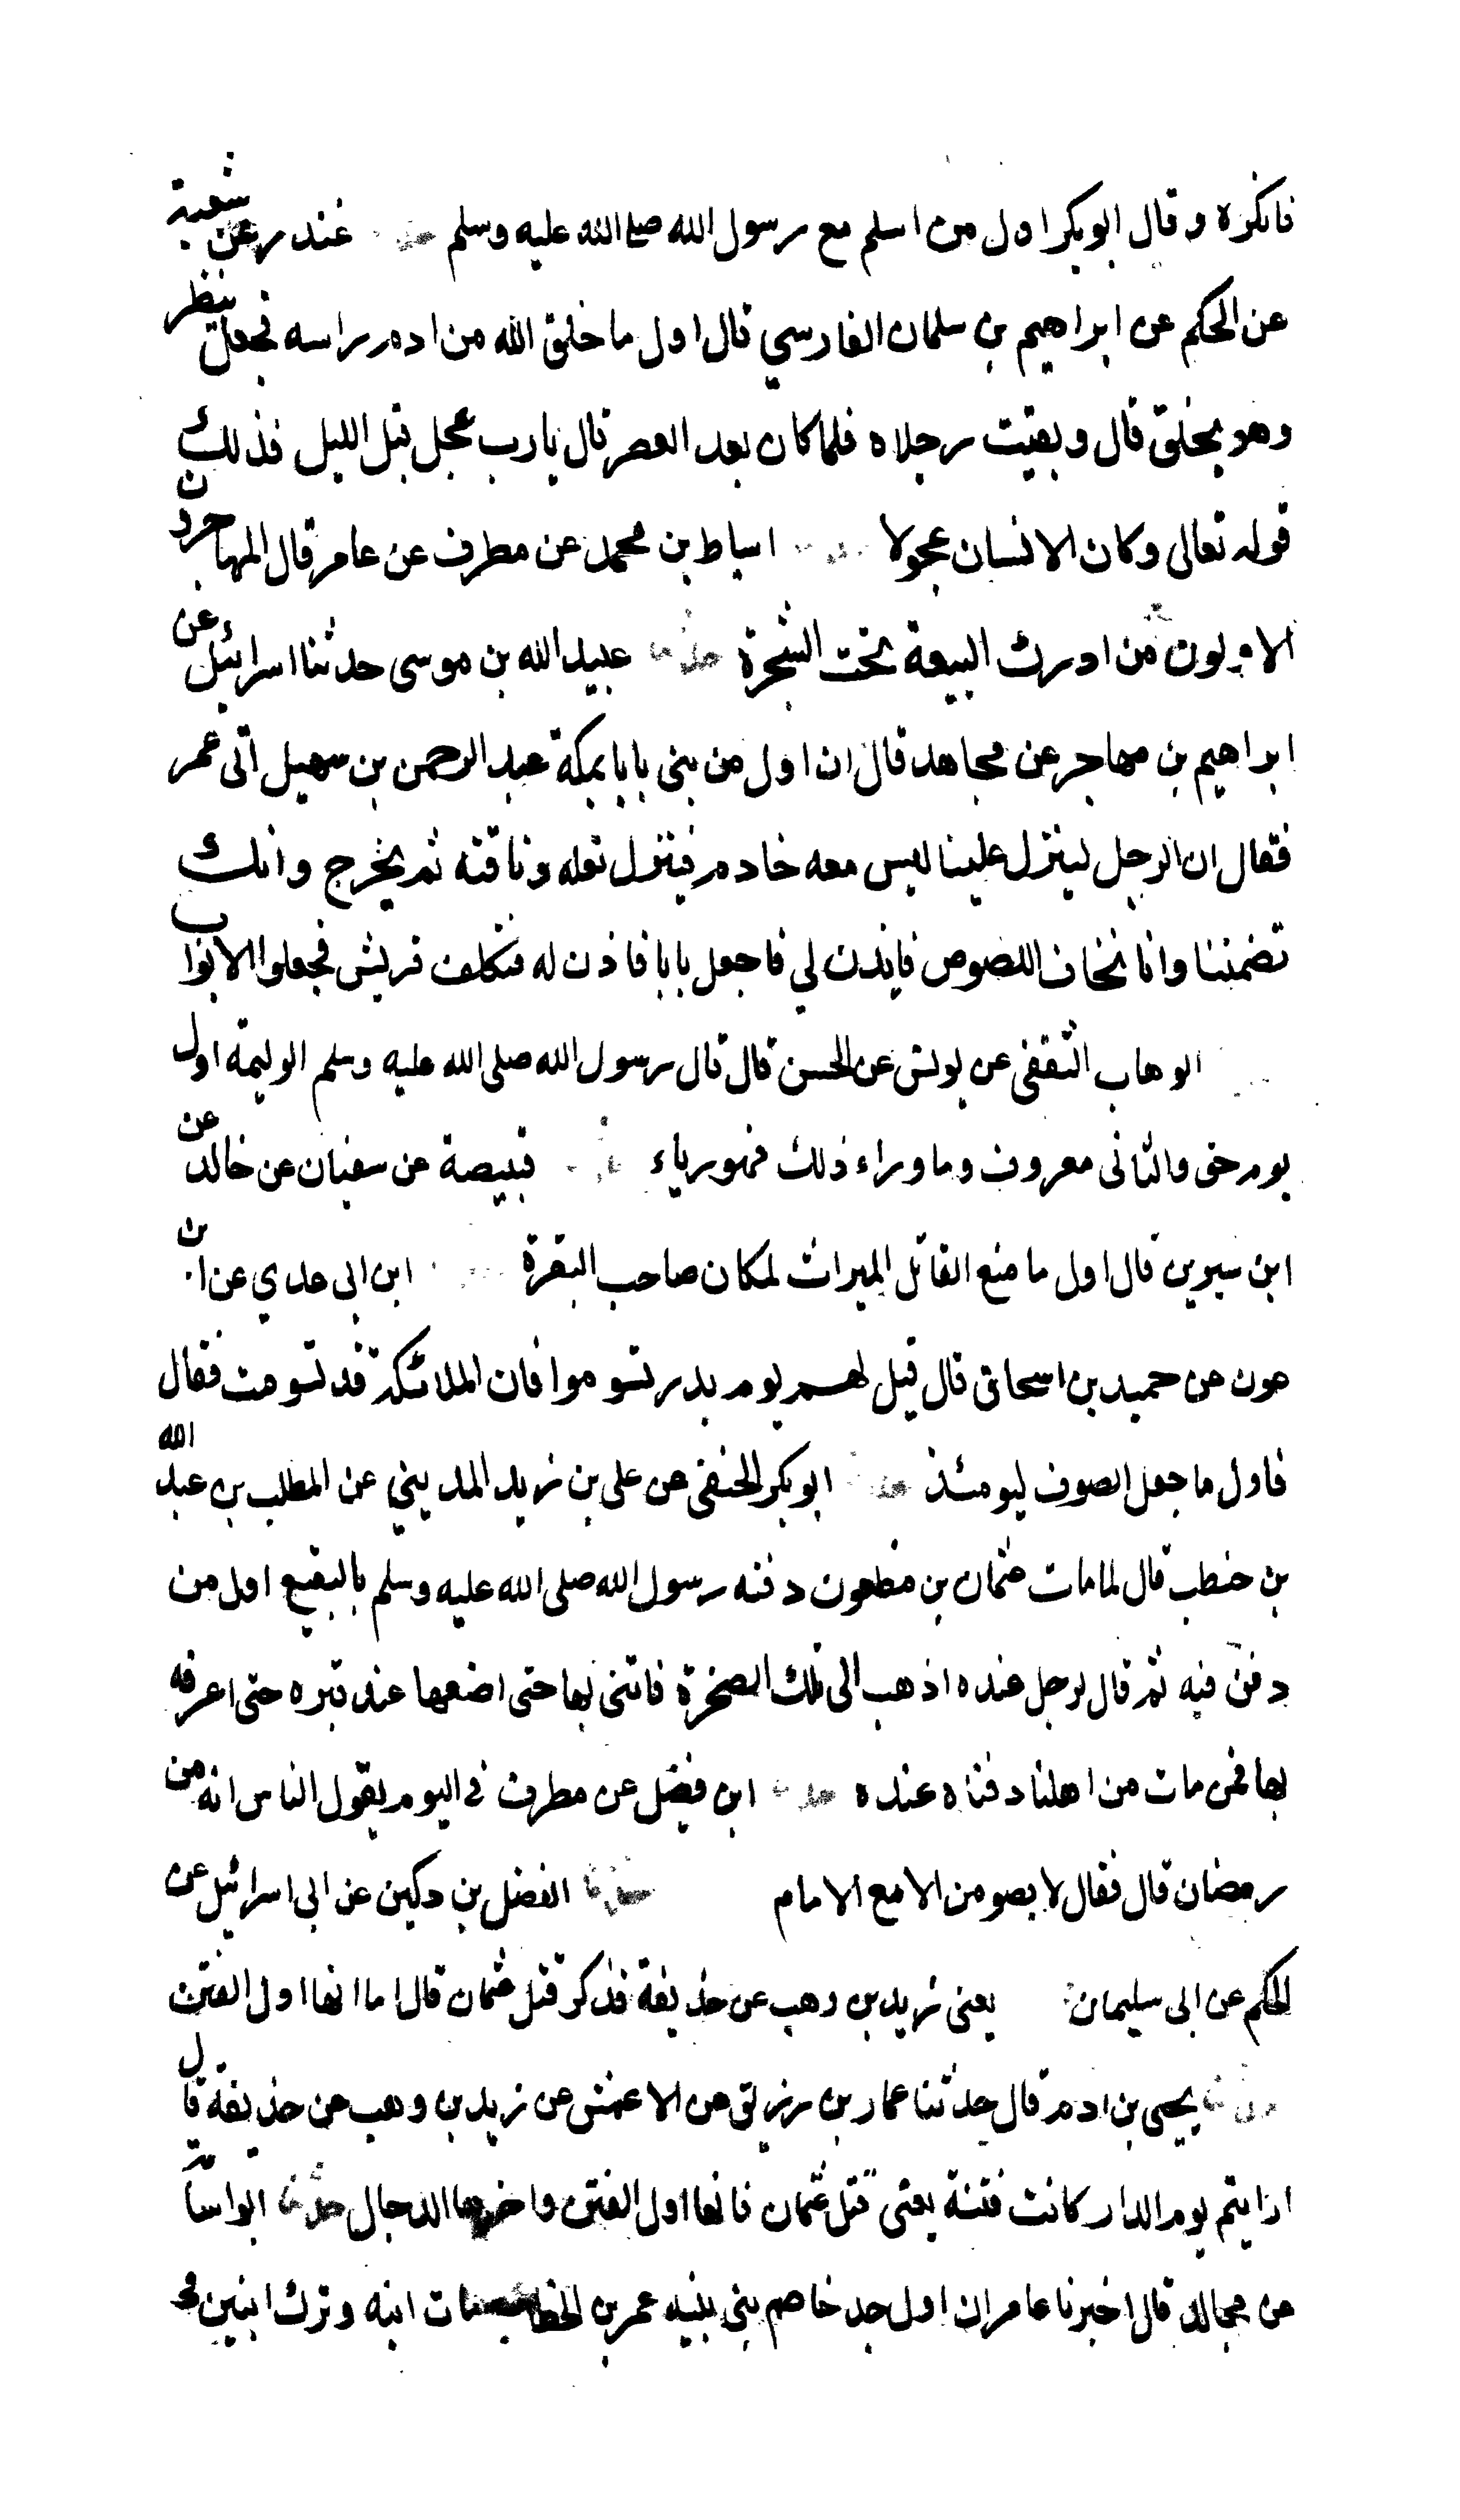 فانكره وقال ابوبكر اول من اسلم مع رسول الله صلى الله عليه وسلم حدثنا غندر عن شعبة
عن الحكم عن ابراهيم بن سلمان الفارسي قال اول ما خلق الله من ادم راسه فجعل ينظر
وهو يخلق قال وبقيت رجلاه فلما كان بعد العصر قال يا رب عجل قبل الليل فذلك
قوله تعالى وكان الانسان عجولا اسباط بن محمد عن مطرف عن عامر قال المهاجرون
الاولون من ادرك البيعة تحت الشجرة حدثنا عبيد الله بن موسى حدثنا اسرائيل عن
ابراهيم بن مهاجر عن مجاهد قال ان اول من بنى بابا بمكة عبد الرحمن بن سهيل اتى عمر
فقال ان الرجل لينزل علينا ليس معه خادم فينزل نعله وناقته ثم يخرج وانك
تضمننا وانا نخاف اللصوص فايذن لي فاجعل بابا فاذن له فتكلف قريش فجعلوا الابواب
الوهاب الثقفى عن يونس عن الحسن قال قال رسول الله صلى الله عليه وسلم الوليمة اول
يوم حق والثانى معروف وما وراء ذلك فهو رياء قبيصة عن سفيان عن خالد عن
ابن سيرين قال اول ما منع القاتل الميراث لمكان صاحب البقرة ابن ابى عدي عن ابن
عون عن حميد بن اسحاق قال قيل لهم يوم بدر تسوموا فان الملائكة قد تسومت فقال
فاول ما جعل الصوف ليومئذ حدثنا ابوبكر الحنفى عن على بن زيد المديني عن المطلب بن عبد الله
بن حنطب قال لما مات عثمان بن مظعون دفنه رسول الله صلى الله عليه وسلم بالبقيع اول من
دفن فيه ثم قال لرجل عنده اذهب الى تلك الصخرة فاتنى بها حتى اضعها عند قبره حتى اعرفه
بها فمن مات من اهلنا دفناه عنده حدثنا ابن فضيل عن مطرف فى اليوم يقول الناس انه من
رمضان قال فقال لا يصومن الا مع الامام حدثنا الفضل بن دكين عن ابى اسرائيل عن
الحكم عن ابى سليمان يعنى زيد بن وهب عن حذيفة فذكر قتل عثمان قال اما انها اول الفتن
حدثنا يحيى بن ادم قال حدثنا عمار بن رزيق عن الاعمش عن زيد بن وهب عن حذيفة قال
ارايتم يوم الدار كانت فتنة يعنى قتل عثمان فانها اول الفتن واخرها الدجال حدثنا ابو اسامة
عن مجالد قال اخبرنا عامر ان اول جد خاصم بنى بنيه عمر بن الخطاب مات ابنه وترك ابنين